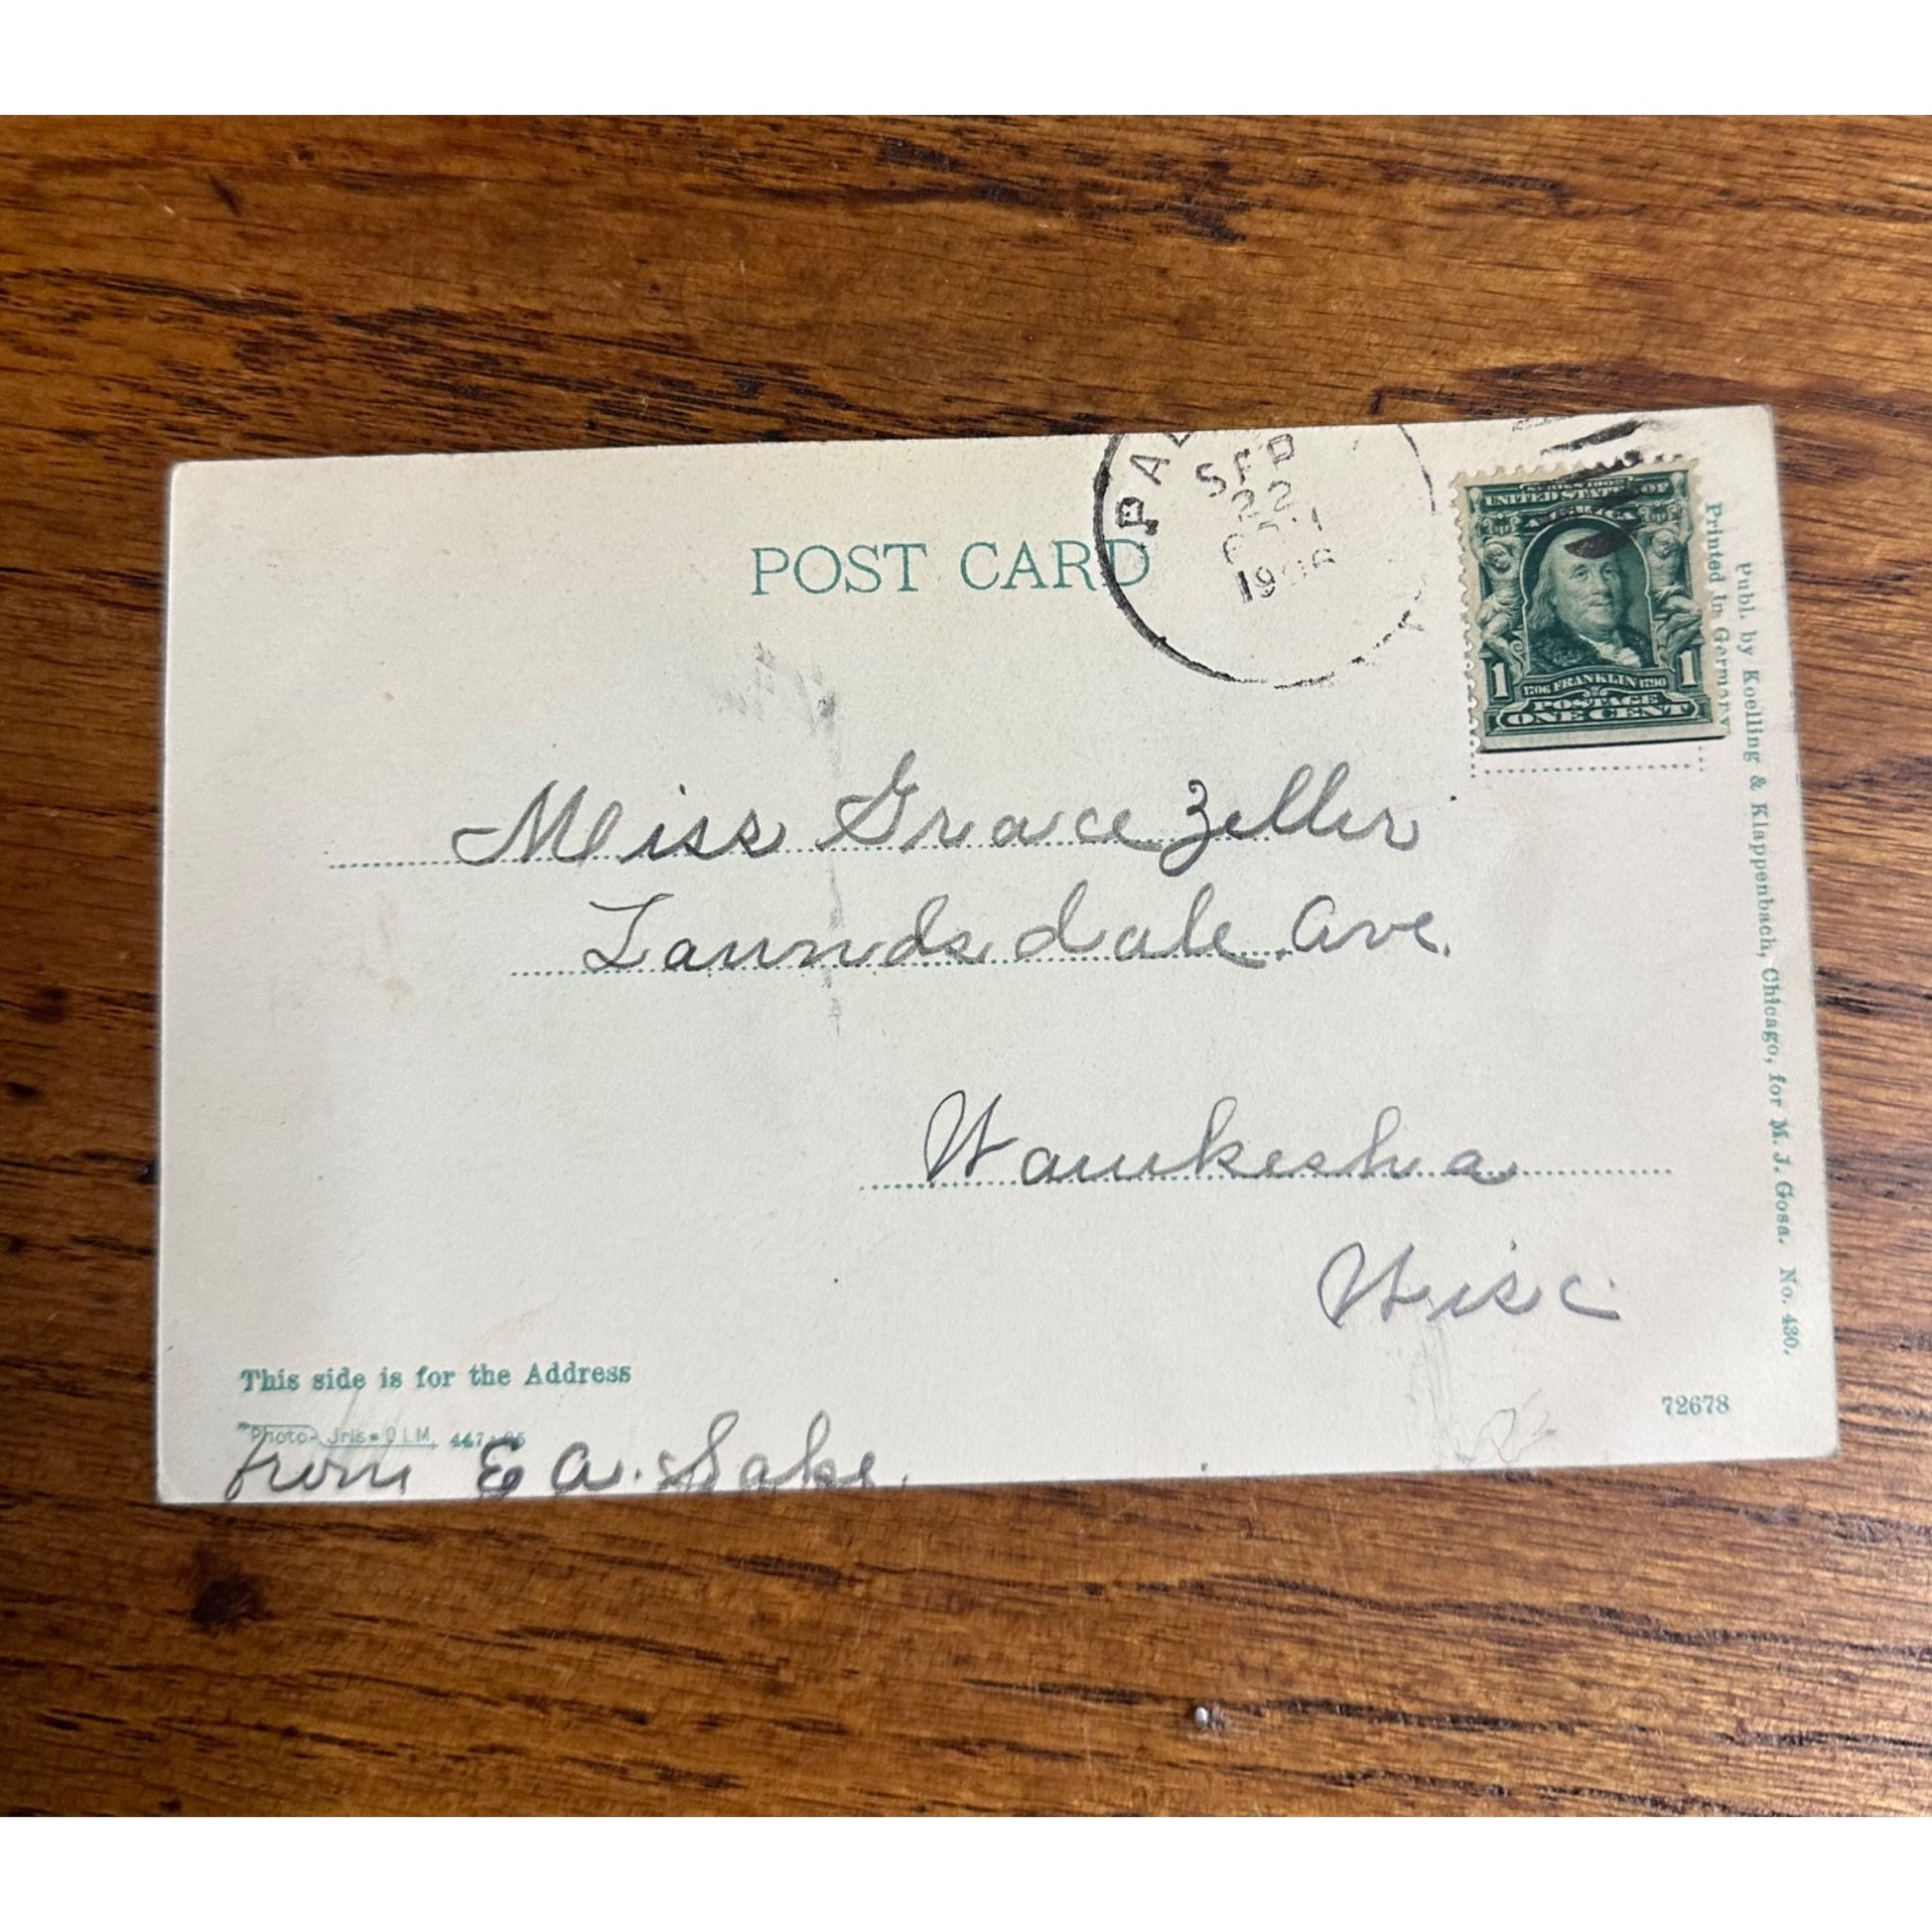 POST CARD
SEP
22
1906
SERIES 1902
UNITED STATES OF
AMERICA
1 1
1706 FRANKLIN 1790
POSTAGE
ONE CENT
Miss Grace Zeller
Laundsdale Ave.
Waukesha
Wisc
This side is for the Address
from E A.
72678
Publ. by Koelling & Klappenbach, Chicago, for M. J. Gosa. No. 430.
Printed in Germany